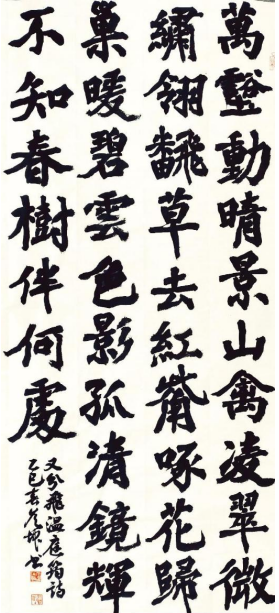 萬壑動晴景山禽凌翠微
繡翎飜草去紅觜啄花歸
巢暖碧雲色影孤清鏡輝
不知春樹伴何處
又分飛温庭筠詩
乙巳春